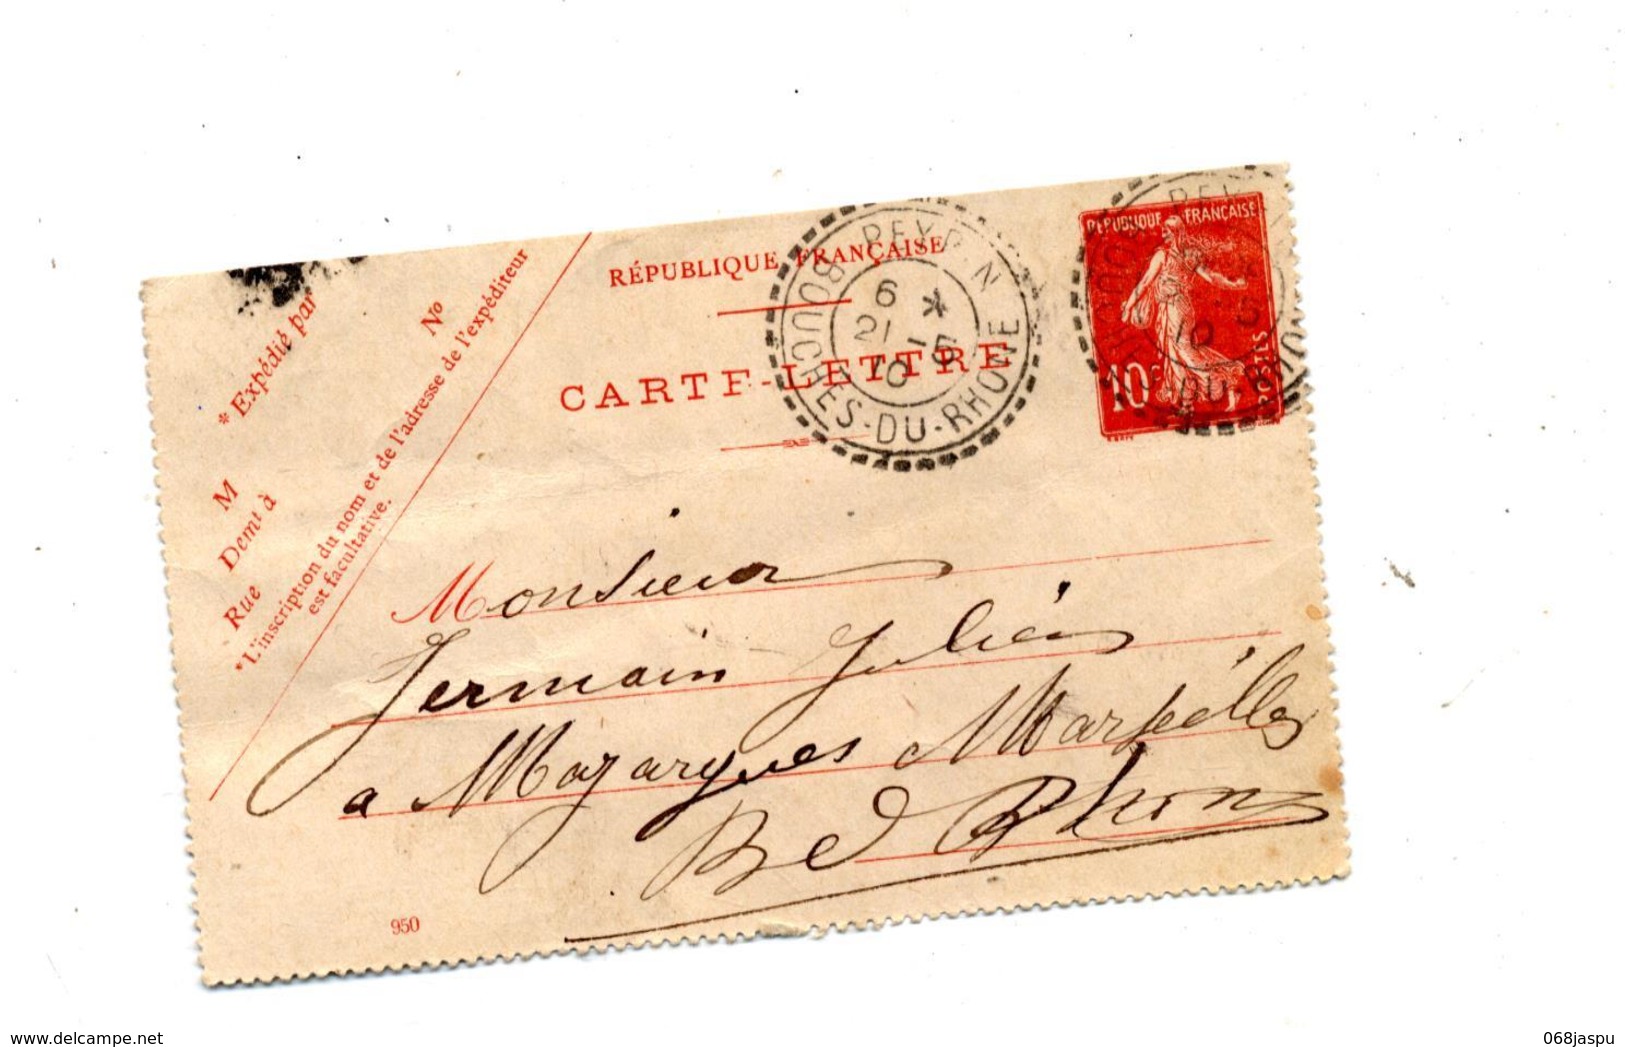 RÉPUBLIQUE FRANÇAISE
CARTE-LETTRE
* Expédié par
M
Demt à
Rue
No
*L'inscription du nom et de l'adresse de l'expéditeur
est facultative.
PEYPIN
6 *
21 -5
10
BOUCHES-DU-RHONE
REPUBLIQUE FRANÇAISE
10c
POSTES
Monsieur
Jermain Julien
a Mazargues Marseille
B d Rhone
950
www.delcampe.net
068jaspu